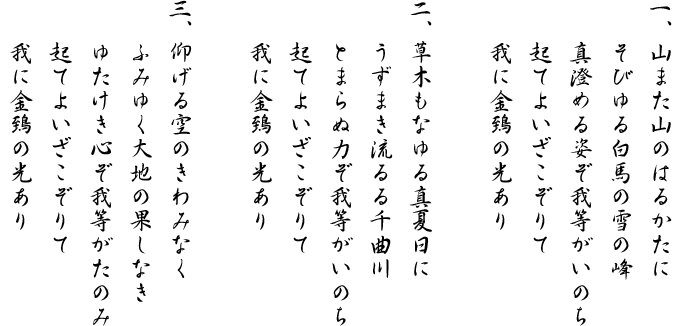 一、山また山のはるかたに
そびゆる白馬の雪の峰
真澄める姿ぞ我等がいのち
起てよいざこぞりて
我に金鵄の光あり
二、草木もなゆる真夏日に
うずまき流るる千曲川
とまらぬ力ぞ我等がいのち
起てよいざこぞりて
我に金鵄の光あり
三、仰げる空のきわみなく
ふみゆく大地の果しなき
ゆたけき心ぞ我等がたのみ
起てよいざこぞりて
我に金鵄の光あり